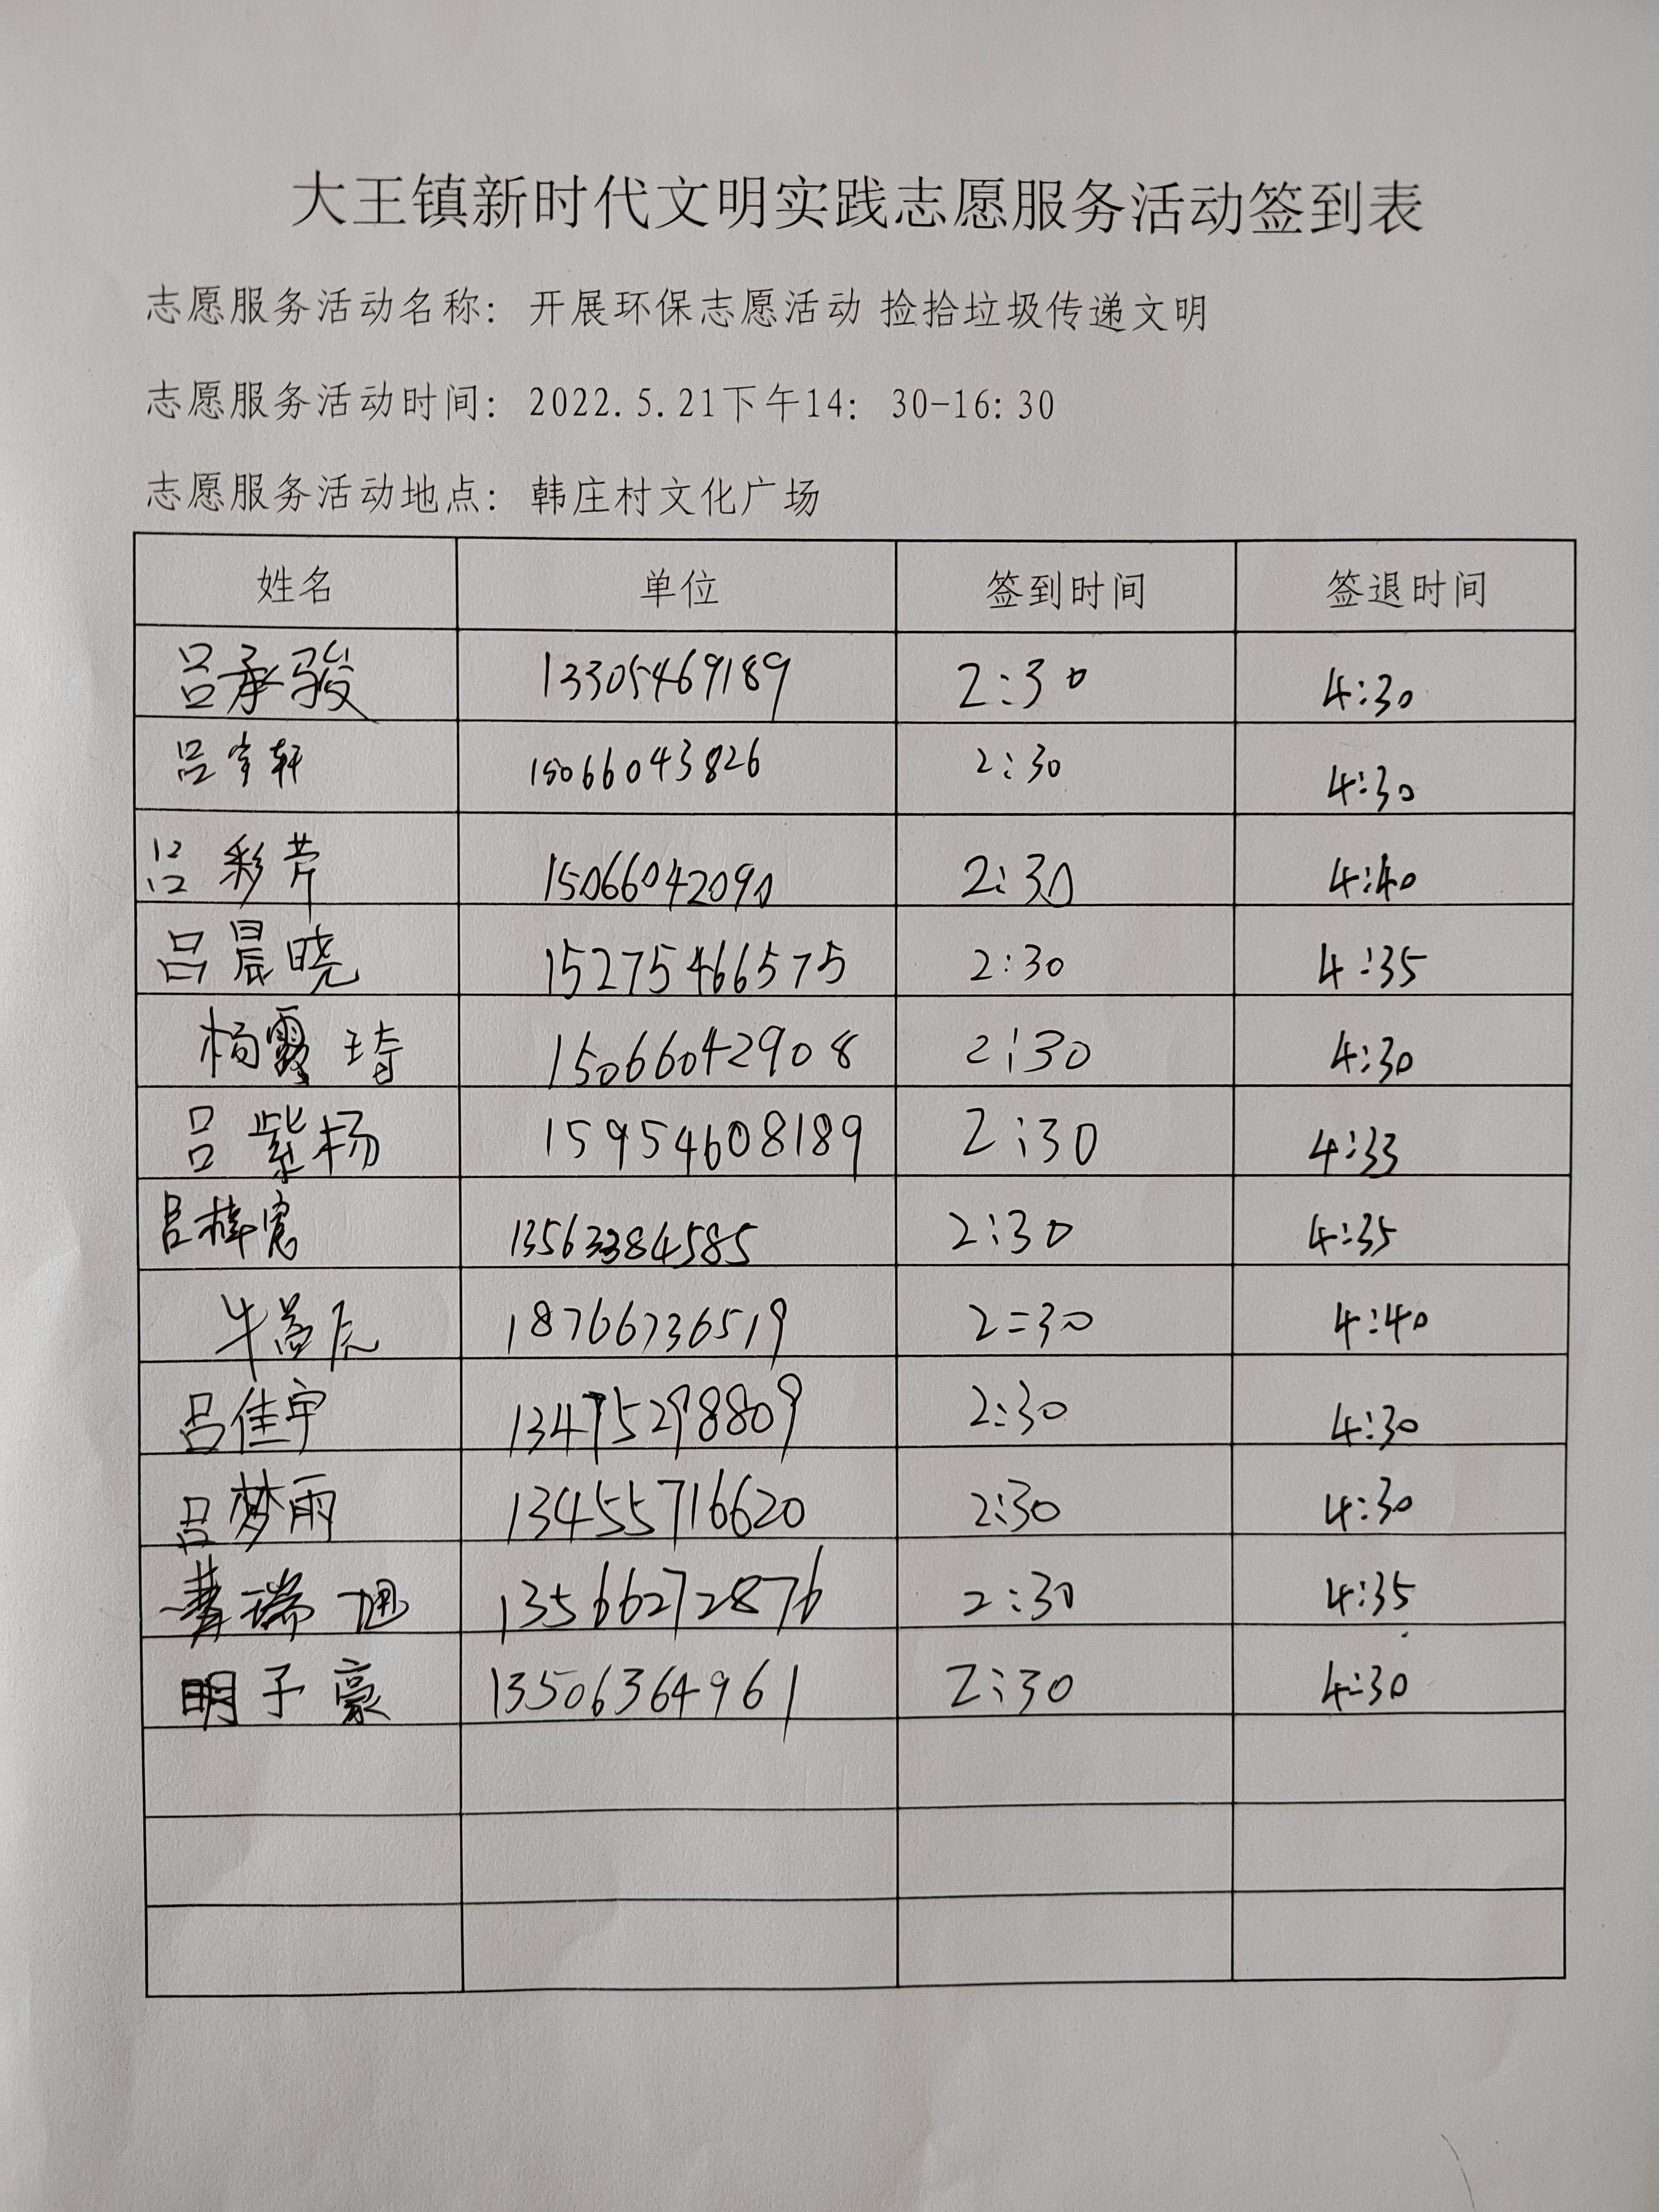 大王镇新时代文明实践志愿服务活动签到表
志愿服务活动名称：开展环保志愿活动 捡拾垃圾传递文明
志愿服务活动时间：2022.5.21下午14：30-16:30
志愿服务活动地点：韩庄村文化广场
姓名 单位 签到时间 签退时间
吕承骏 13305469189 2:30 4:30
吕宇轩 15066043826 2:30 4:30
吕彩芹 15066042090 2:30 4:40
吕晨晓 15275466575 2:30 4:35
杨露琦 15066042908 2:30 4:30
吕紫杨 15954608189 2:30 4:33
吕梓宸 13563384585 2:30 4:35
牛 18766736519 2:30 4:40
吕佳宇 13475298809 2:30 4:30
吕梦雨 13455716620 2:30 4:30
瑞旭 13566272876 2:30 4:35
明子豪 13506364961 2:30 4:30